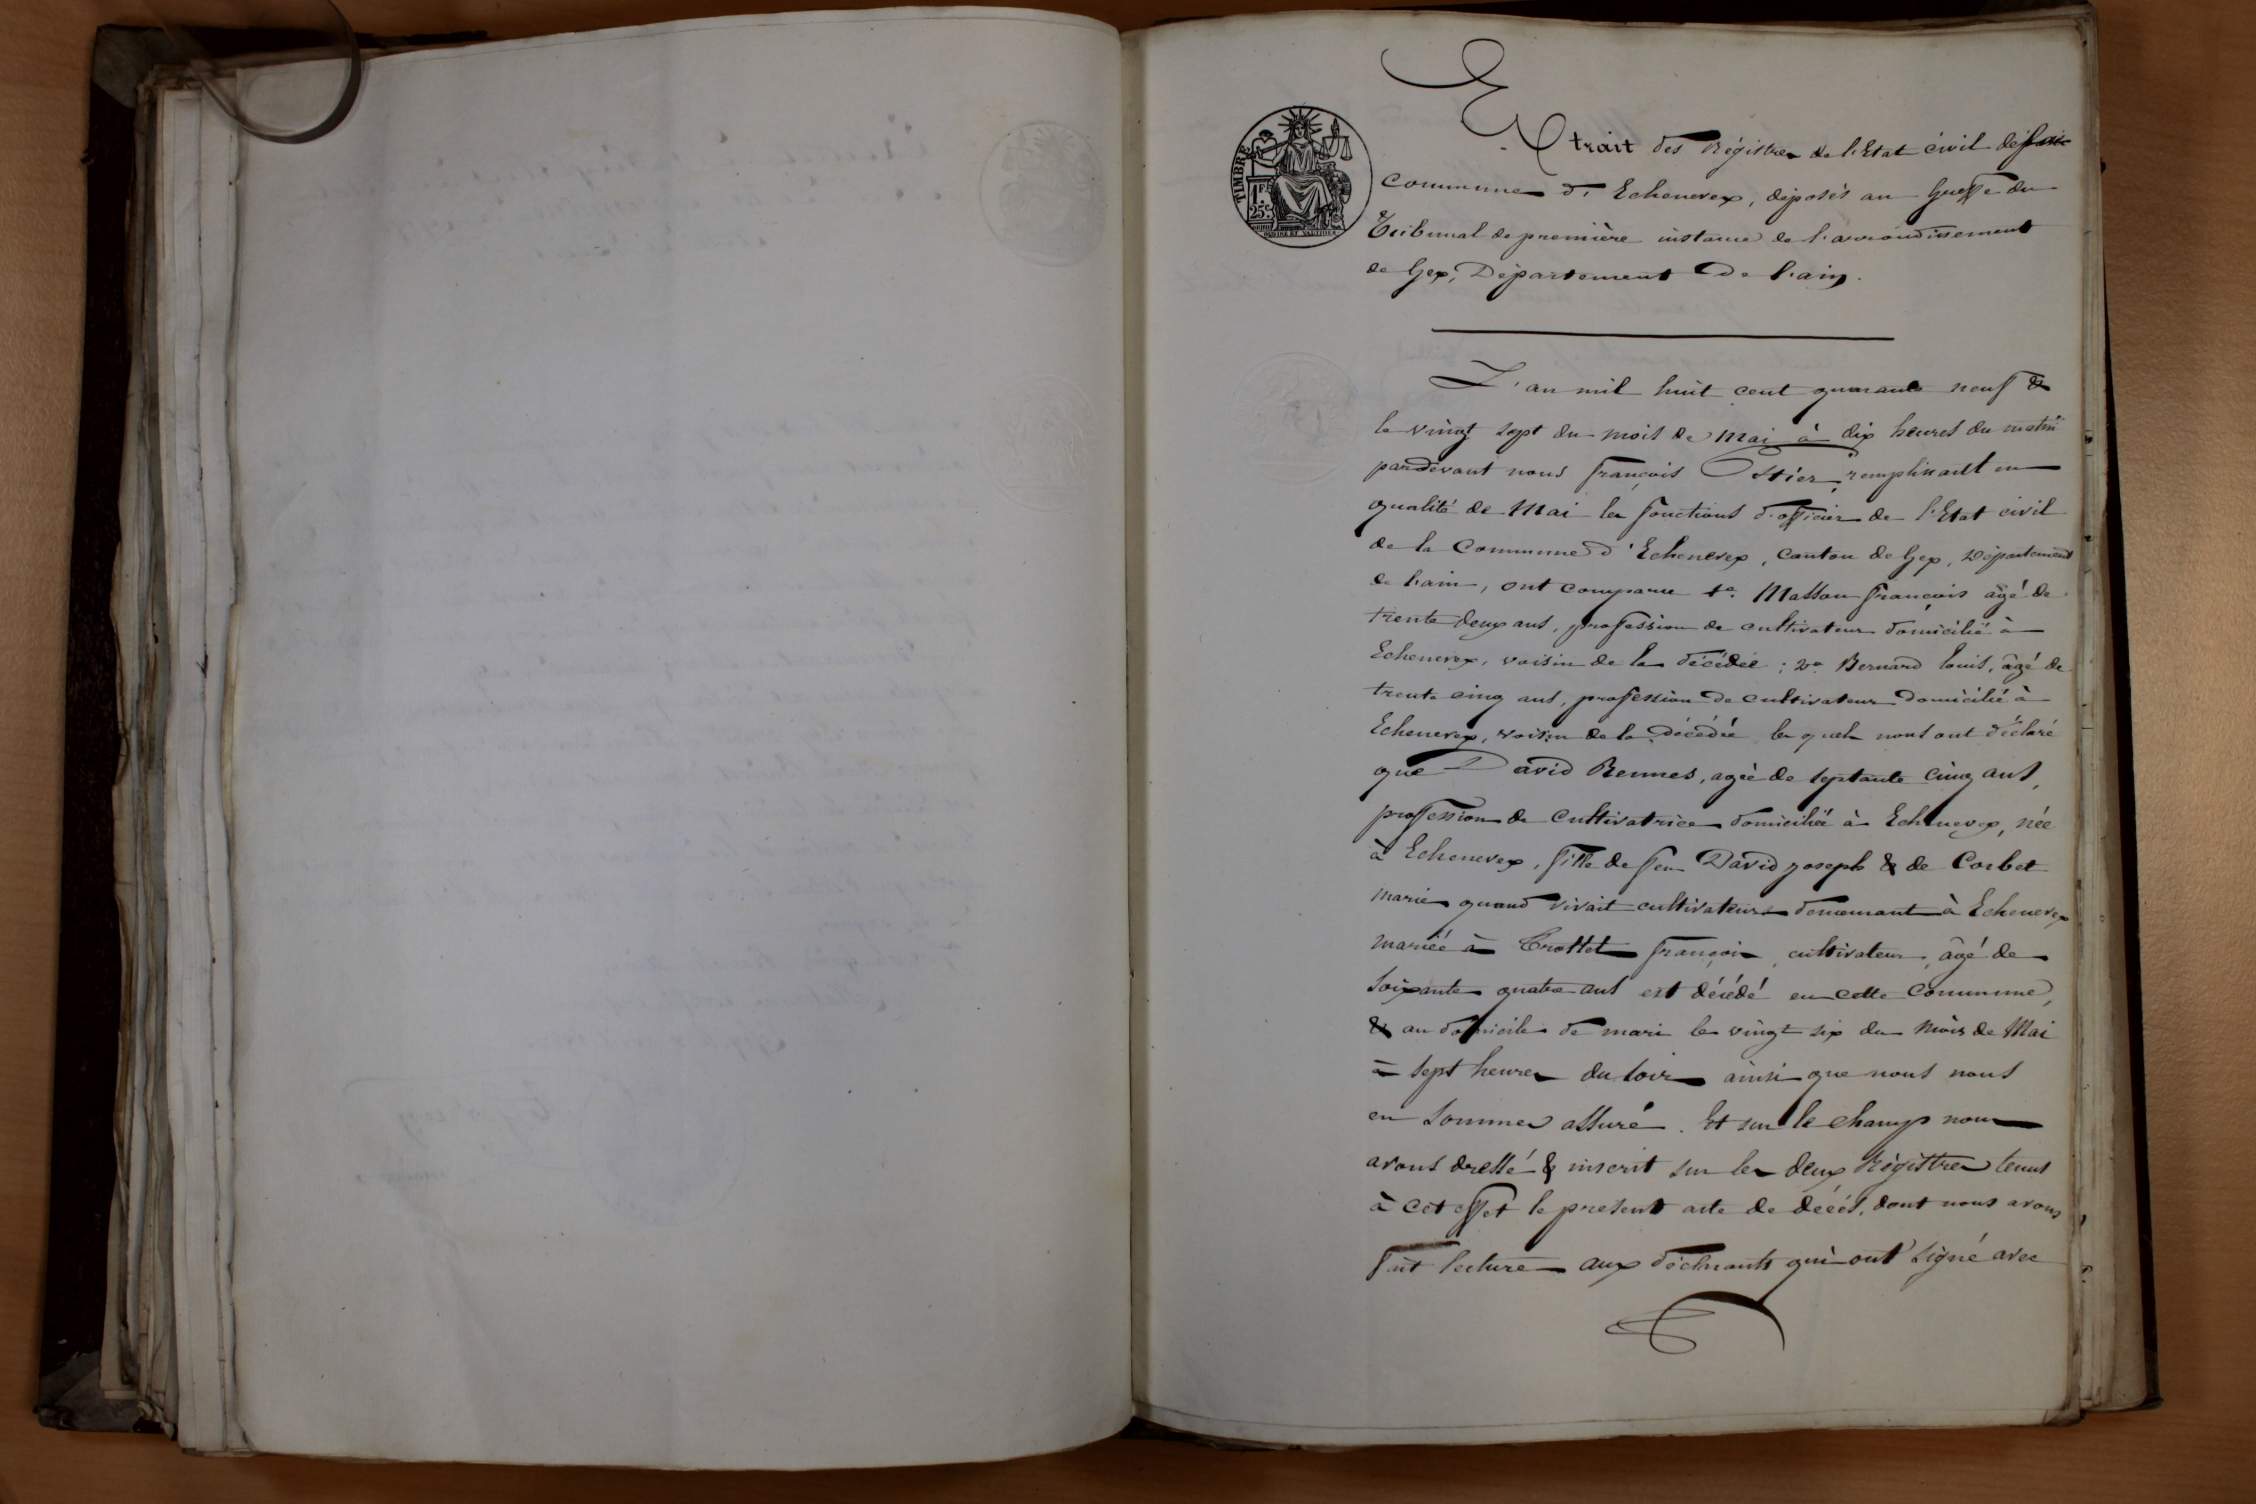 Extrait des Régistres de l'Etat civil de
Commune d'Echenevex, déposés au Greffe du
Tribunal de première instance de l'arrondissement
de Gex, Département de l'ain.
TIMBRE
1F.
25c.
L'an mil huit cent quarante neuf &
le vingt sept du mois de Mai à dix heures du matin
pardevant nous françois Ostier, remplissant en
qualité de Mai les fonctions d'officier de l'Etat civil
de la Commune d'Echenevex, canton de Gex, Département
de l'ain, ont comparu 1o. Masson françois âgé de
trente deux ans, profession de cultivateur domicilié à
Echenevex, voisin de la décédée ; 2o. Bernard louis, âgé de
trente cinq ans, profession de cultivateur domicilié à
Echenevex, voisin de la décédée les quels nous ont déclaré
que David Rennes, agée de septante cinq ans,
profession de Cultivatrice domiciliée à Echenevex, née
à Echenevex, fille de feu David joseph & de Corbet
marie quand vivait cultivateurs demeurant à Echenevex
mariée à Trottet françois, cultivateur, âgé de
soixante quatre ans est décédé en cette Commune,
& au domicile de mari le vingt six du Mois de Mai
à sept heures du soir ainsi que nous nous
en sommes assuré. Et sur le champ nous
avons dressé & inscrit sur les deux Régistres tenus
à cet effet le présent acte de décés, dont nous avons
fait lecture aux déclarants qui ont signé avec